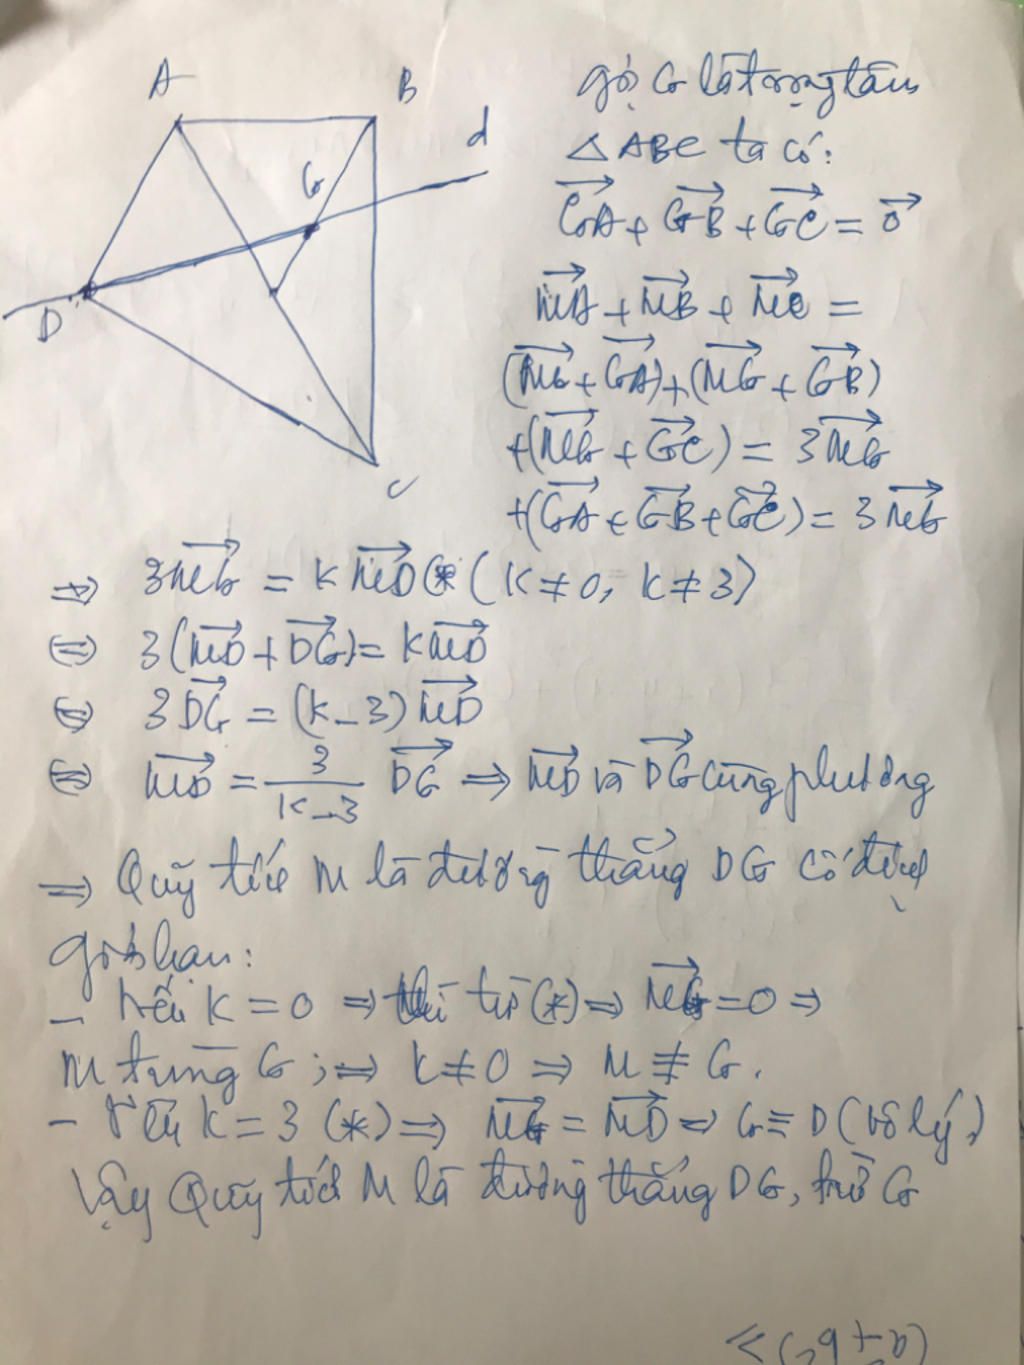 A
B
d
G
D
C
gọi G là trọng tâm
△ABC ta có:
GA + GB + GC = 0
MA + MB + MC =
(MG + GA) + (MG + GB)
+ (MG + GC) = 3MG
+ (GA + GB + GC) = 3MG
⇒ 3MG = kMD (* (K ≠ 0, K ≠ 3)
⇔ 3(MD + DG) = kMD
⇔ 3DG = (k - 3)MD
⇔ MD = 3/(K-3) DG ⇒ MD và DG cùng phương
⇒ Quỹ tích M là đường thẳng DG cố định
Giới hạn:
- Nếu K = 0 ⇒ thì từ (*) ⇒ MG = 0 ⇒
M trùng G ; ⇒ K ≠ 0 ⇒ M ≢ G.
- Nếu K = 3 (*) ⇒ MG = MD ⇒ G ≡ D (vô lý)
Vậy Quỹ tích M là đường thẳng DG, trừ G